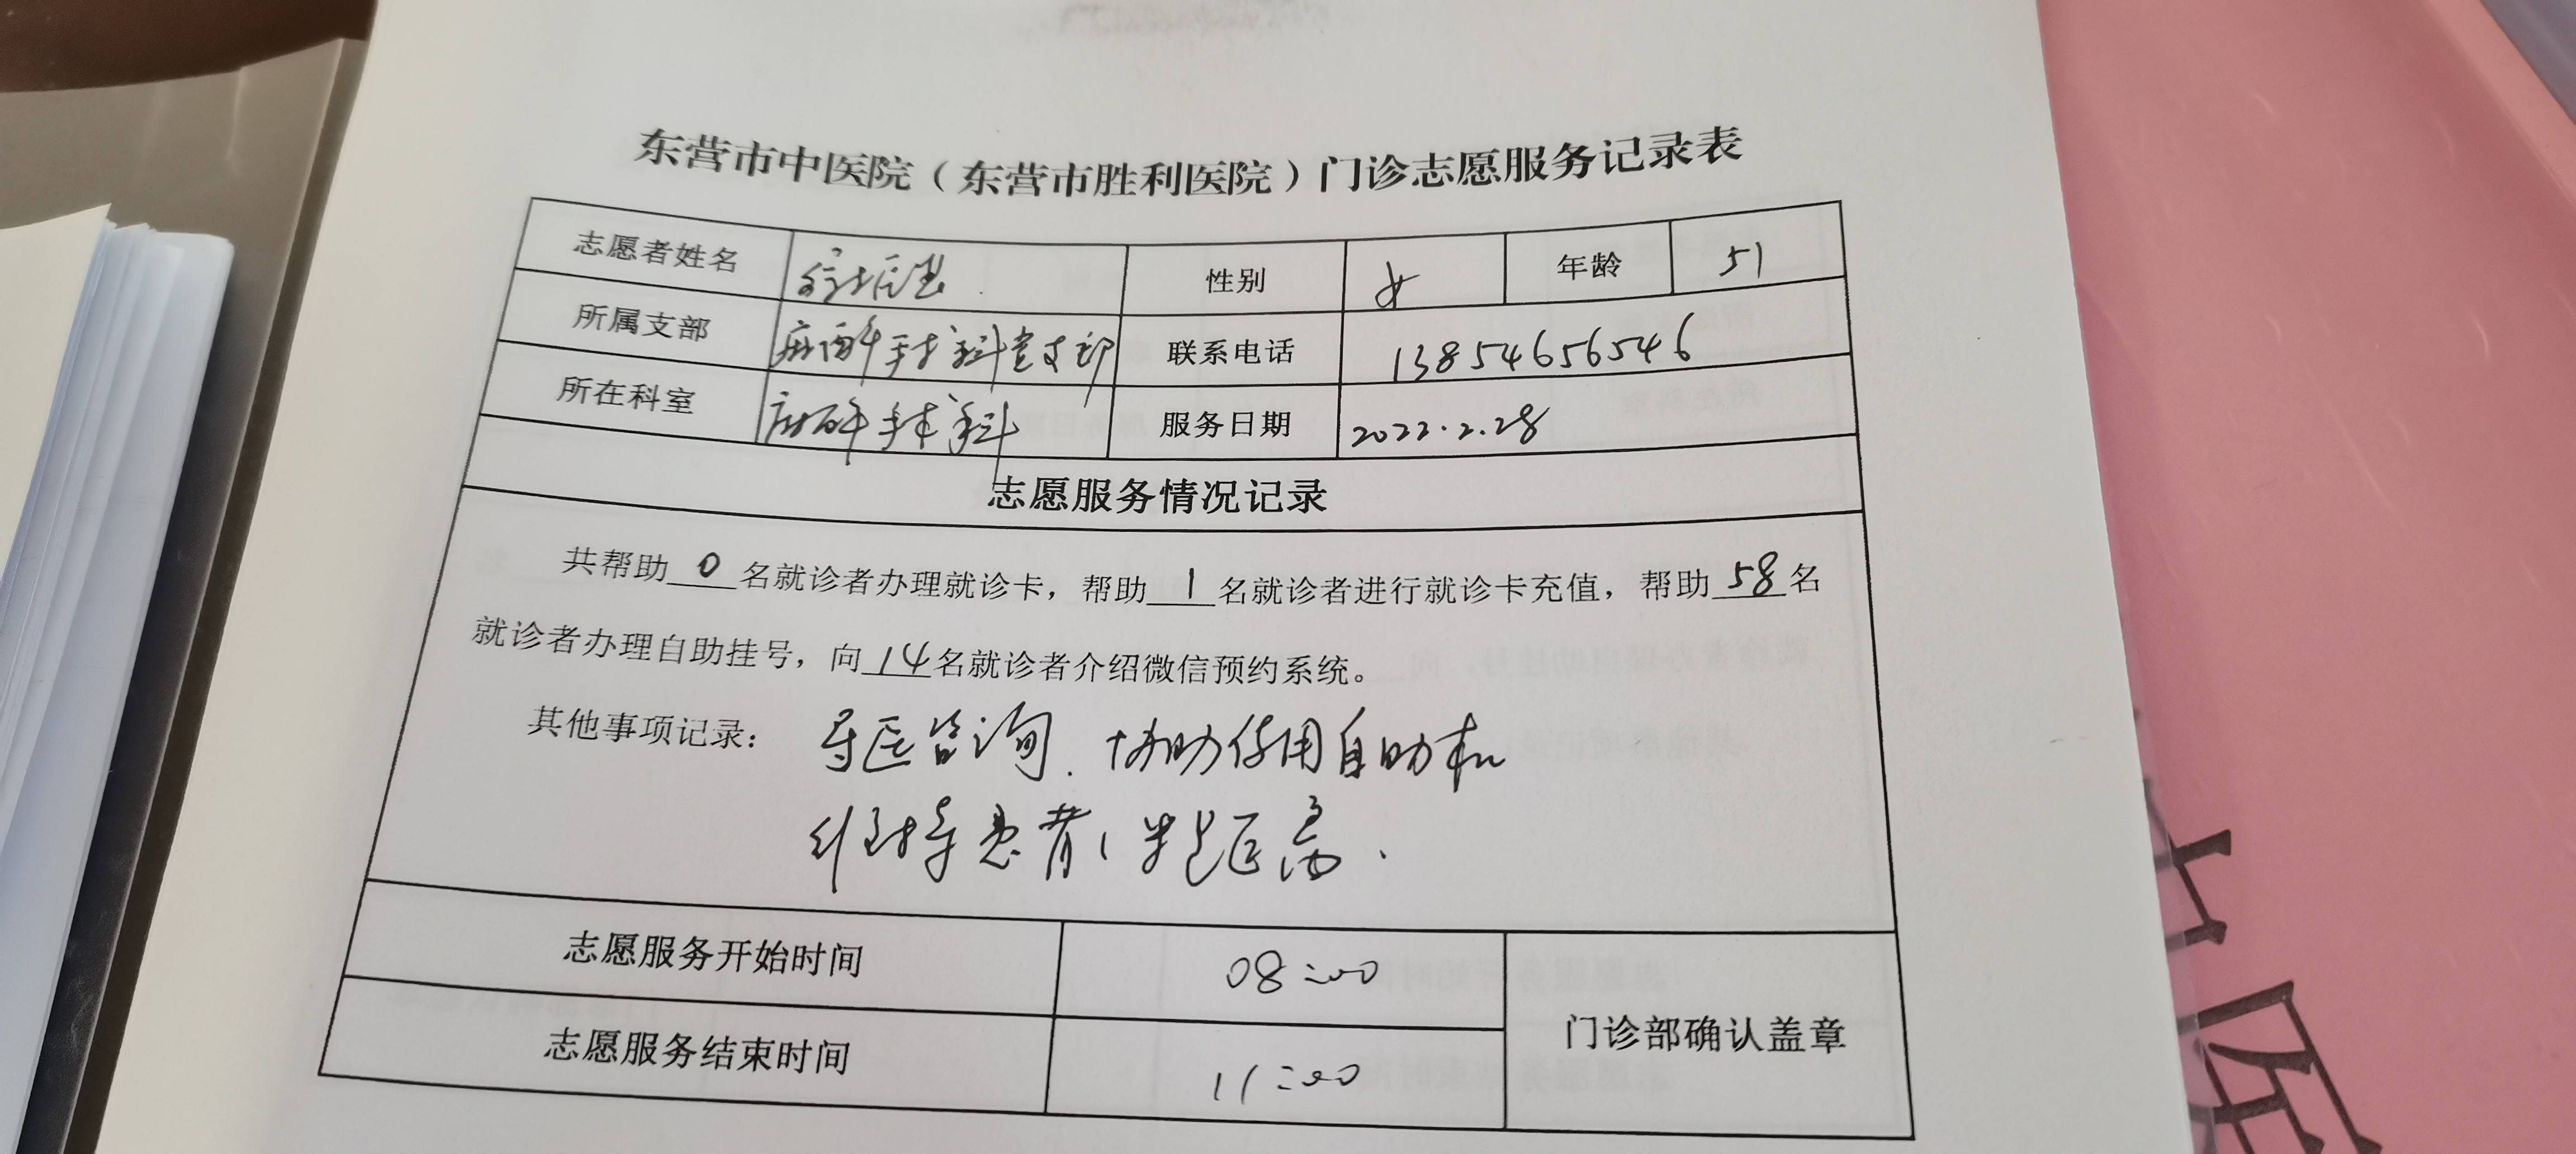 东营市中医院（东营市胜利医院）门诊志愿服务记录表
志愿者姓名 性别 女 年龄 51
所属支部 麻醉手术科党支部 联系电话 13854656546
所在科室 麻醉手术科 服务日期 2022.2.28
志愿服务情况记录
共帮助 0 名就诊者办理就诊卡，帮助 1 名就诊者进行就诊卡充值，帮助 58 名
就诊者办理自助挂号，向 14 名就诊者介绍微信预约系统。
其他事项记录： 导医咨询、协助使用自助机
维持患者1米距离.
志愿服务开始时间 08:00
门诊部确认盖章
志愿服务结束时间 11:00
中医